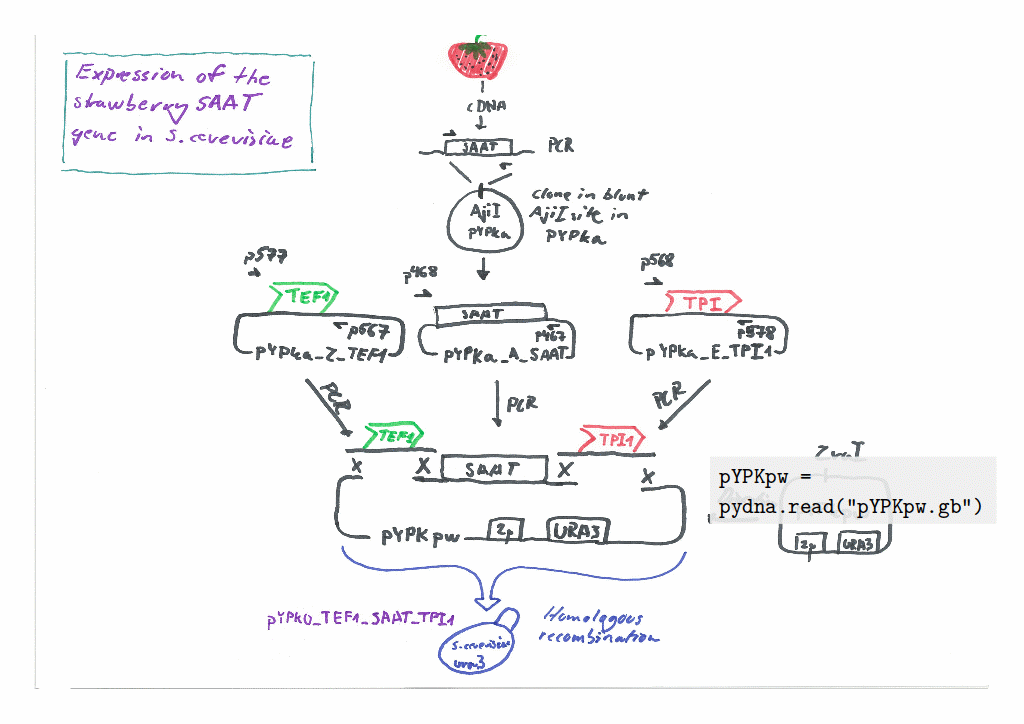 Expression of the
strawberry SAAT
gene in S. cerevisiae
cDNA
SAAT
PCR
AjiI
pYPKa
Clone in blunt
AjiI site in
pYPKa
p577
TEF1
p667
pYPKa_Z_TEF1
p468
SAAT
p467
pYPKa_A_SAAT
p568
TPI
p578
pYPKa_E_TPI1
PCR
PCR
PCR
TEF1
TPI1
X
X
SAAT
X
X
pYPKpw
2µ
URA3
pYPKpw =
pydna.read("pYPKpw.gb")
2µ
URA3
pYPK0_TEF1_SAAT_TPI1
Homologous
recombination
S. cerevisiae
ura3